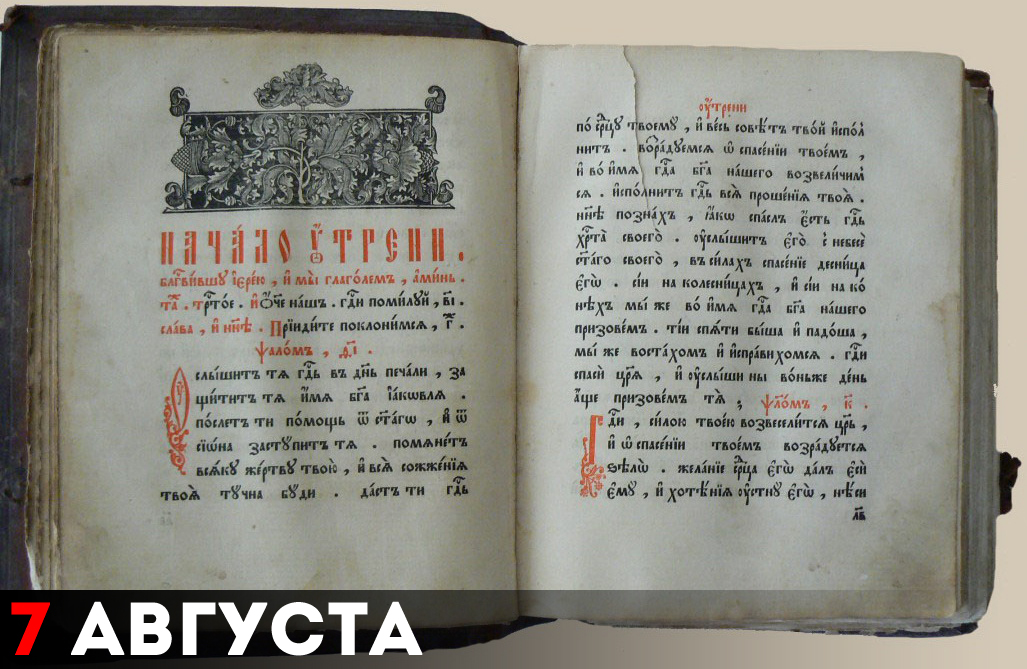 НАЧА́ЛО ОУ҆́ТРЕНИ .
Блгⷭ҇ви́вшу і҆ере́ю , и҆ мы̀ глаго́лемъ , а҆ми́нь .
та́ . трⷭ҇то́е . и҆ Ѻ҆́ч҃е на́шъ . гдⷭ҇и поми́луй , в҃і .
сла́ва , и҆ нн҃ѣ . Прїиди́те поклони́мсѧ , г҃ .
ѱало́мъ , ѳ҃і .
Оу҆слы́шитъ тѧ гдⷭ҇ь въ дн҃ь печа́ли , за
щи́титъ тѧ и҆́мѧ бг҃а і҆а́кѡвлѧ .
по́слетъ ти по́мощь ѿ ст҃а́гѡ , и҆ ѿ
сїѡ́на засту́питъ тѧ . помѧне́тъ
всѧ́ку же́ртву твою̀ , и҆ всѧ̀ сожже́нїѧ
твоѧ̀ ту́чна бу́ди . да́стъ ти гдⷭ҇ь
оу҆́трени
по срⷣцу твоему̀ , и҆ ве́сь совѣ́тъ тво́й и҆спо́л
нитъ . возра́дуемсѧ ѡ҆ спасе́нїи твое́мъ ,
и҆ во́ и҆мѧ гдⷭ҇а бг҃а на́шего возвели́чим
сѧ . и҆спо́лнитъ гдⷭ҇ь всѧ̀ проше́нїѧ твоѧ̀ .
нн҃ѣ позна́хъ , ꙗ҆́кѡ спа́слъ є҆́сть гдⷭ҇ь
хрⷭ҇та̀ своего̀ . оу҆слы́шитъ є҆го̀ с небесѐ
ст҃а́го своего̀ , въ си́лахъ спасе́нїе десни́ца
є҆гѡ̀ . сі́и на колесни́цахъ , и҆ сі́и на ко́
нѣхъ мы́ же во́ и҆мѧ гдⷭ҇а бг҃а на́шего
призове́мъ . ті́и спѧ́ти бы́ша и҆ падо́ша ,
мы́ же воста́хомъ и҆ и҆спра́вихомсѧ . гдⷭ҇и
спасѝ цр҃ѧ̀ , и҆ оу҆слы́ши ны во́ньже де́нь
а҆́ще призове́мъ тѧ̀ ; ѱало́мъ , к҃ .
Гдⷭ҇и , си́лою твое́ю возвесели́тсѧ цр҃ь ,
и҆ ѡ҆ спасе́нїи твое́мъ возра́дуетсѧ
ѕѣлѡ̀ . жела́нїе срⷣца є҆гѡ̀ да́лъ є҆сѝ
є҆му̀ , и҆ хотѣ́нїѧ оу҆стну̀ є҆гѡ̀ , нѣ́си
лв
7 АВГУСТА